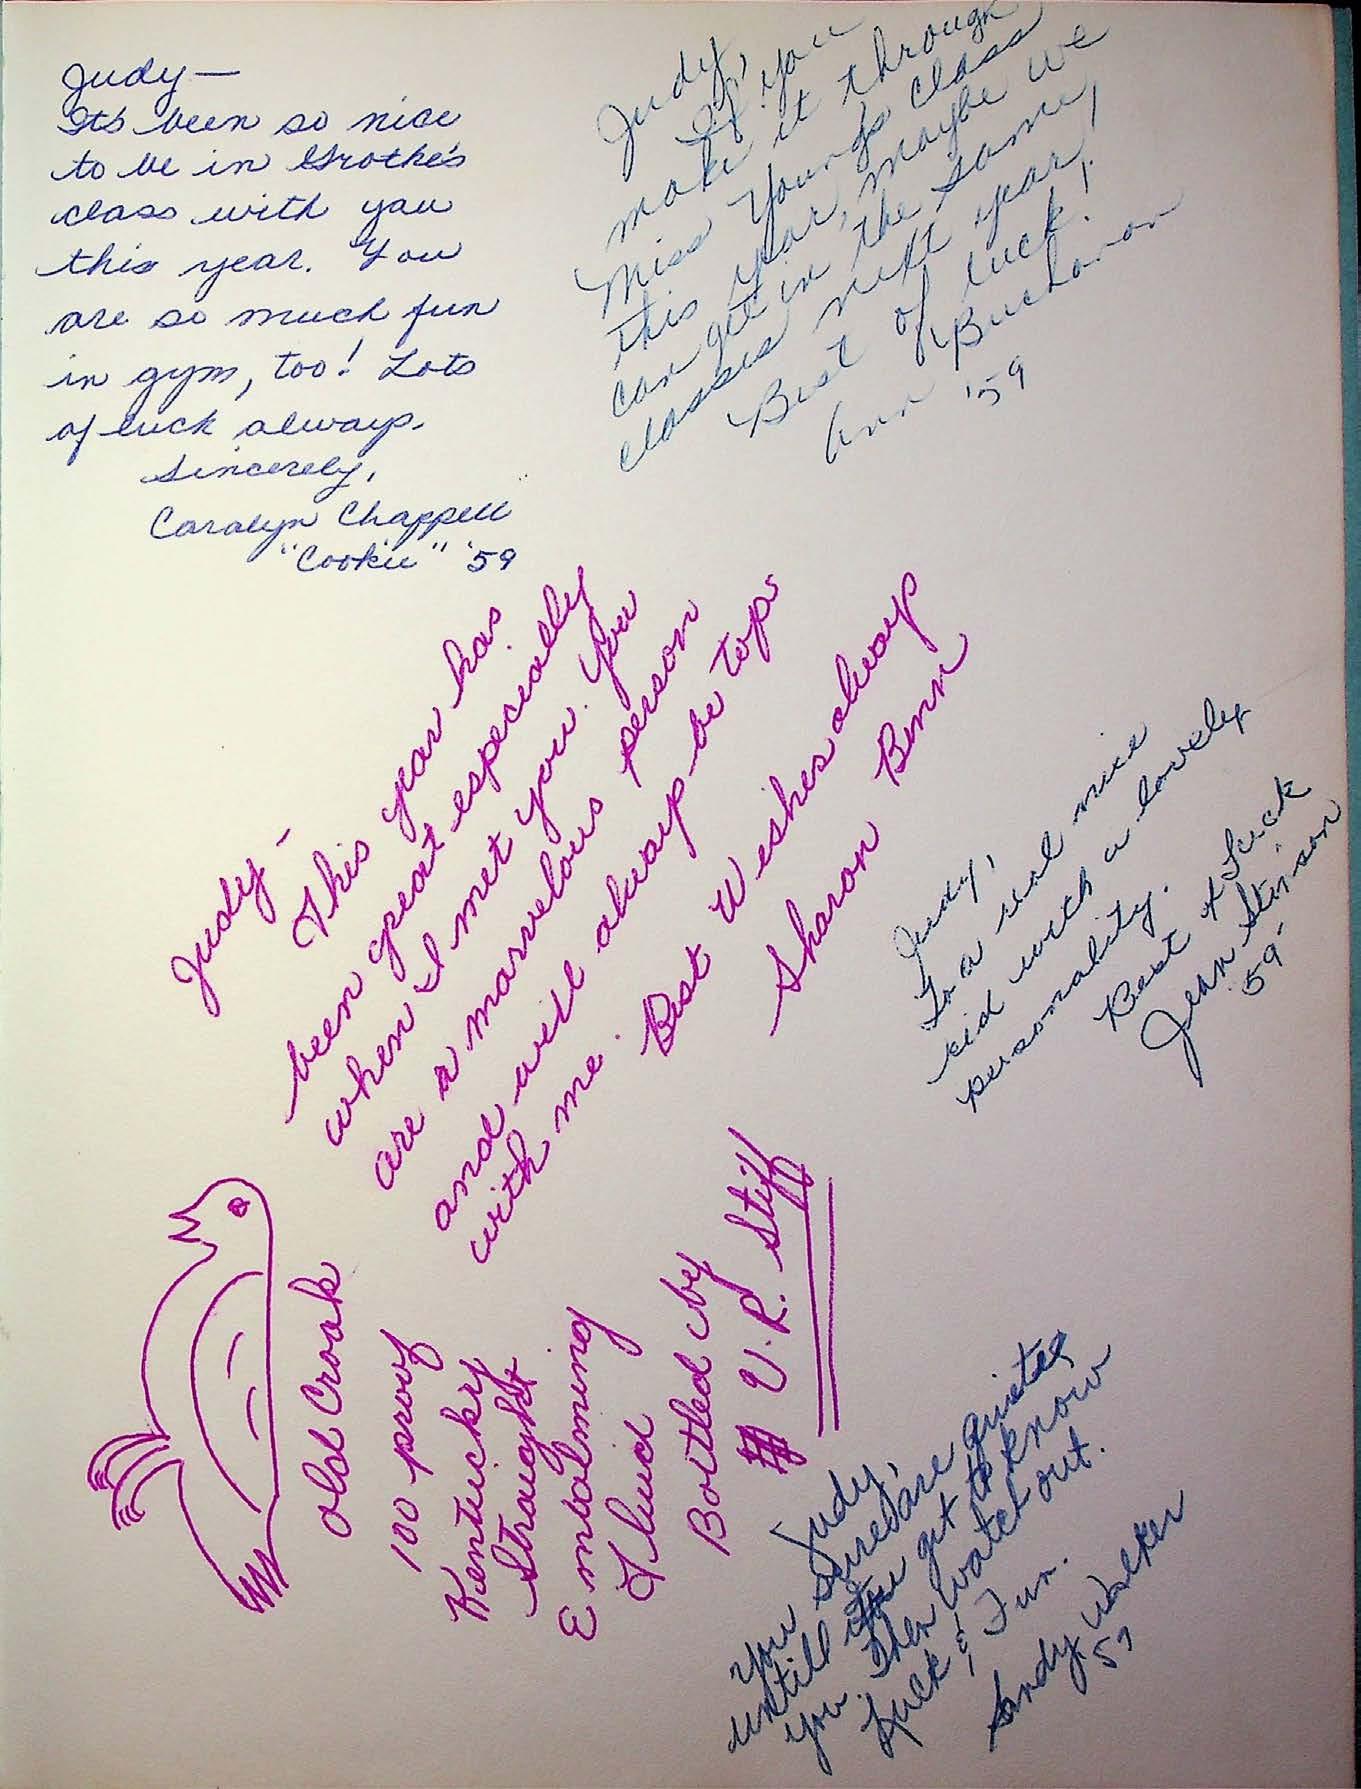 Judy—
Its been so nice
to be in Grothe's
class with you
this year. You
are so much fun
in gym, too! Lots
of luck always.
Sincerely,
Carolyn Chappell
"Cookie" '59
Judy,
If you
make it through
Miss Young's class
this year, maybe we
can get in the same
classes next year!
Best of luck!
Ann Buchanan
'59
Judy—
This year has
been great especially
when I met you. You
are a marvelous person
and will always be tops
with me. Best Wishes always
Sharon Benn
Judy,
To a real nice
kid with a lovely
personality.
Best of Luck
Jean Stinson
59-
Old Croak
100 proof
Kentucky
Straight
Embalming
Fluid
Bottled by
U. R. Stiff
Judy,
You sure are quiet
untill you get to know
you. Then watch out.
Luck & Fun.
Sandy Walker
59